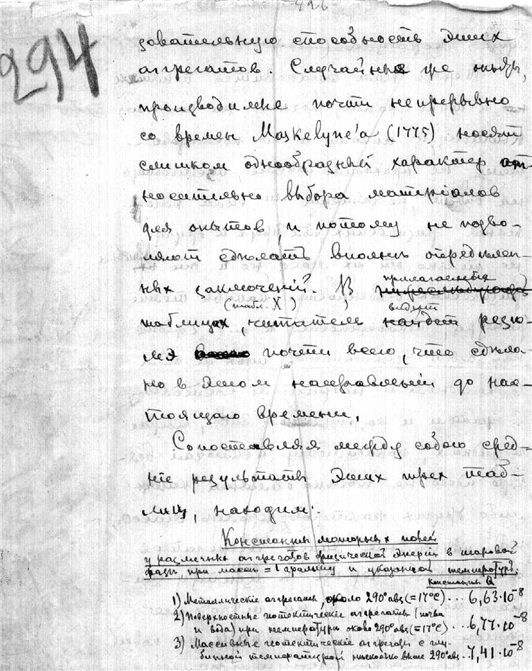 294
зовательную способность этих
агрегатов. Случайные же опыты,
производимые почти непрерывно
со времен Maskelyne'a (1775) носят
слишком однообразный характер от-
носительно выбора матеріаловъ
для опытов, и потому не позво-
ляют сделать вполне определен-
ных заключений. В прилагаемых
(табл. X)
таблицах, читатель найдет резю-
мэ почти всего, что сдела-
но в этом направлении до нас-
тоящаго времени.
Сопоставляя между собою сред-
ніе результаты этих трех таб-
лиц, находим:
Константы моторных полей
у различных агрегатов физической энергии в шаровой
фазе, при массе = 1 грамму и уваромой температуре.
Константа Q
1) Металлические агрегаты около 290° абс (= 17°C) . . . 6,63·10⁻⁸
2) Поверхностные геотектические агрегаты (почва
и вода) при температуре около 290° абс (= 17°C) . . . 6,77·10⁻⁸
3) Массивные геотектические агрегаты с глу-
бинной температурой несколько выше 290° абс. 7,41·10⁻⁸